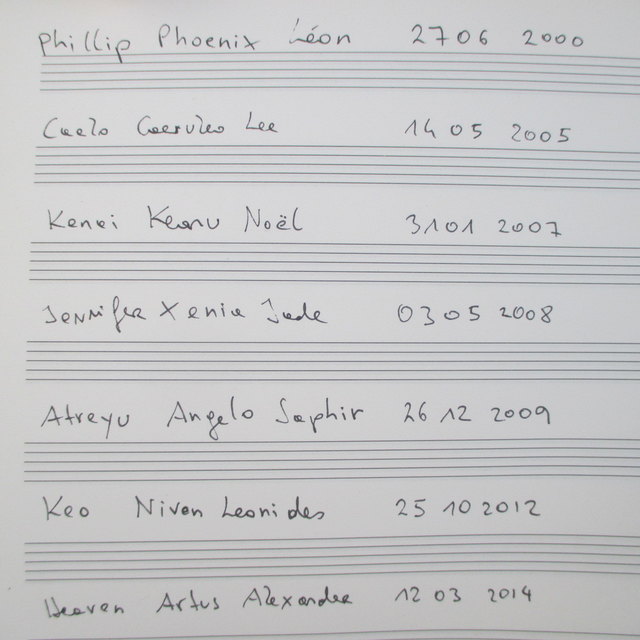 Phillip Phoenix Léon 27 06 2000
Caelo Caeruleo Lee 14 05 2005
Kenai Keanu Noël 31 01 2007
Jennifer Xenia Jade 03 05 2008
Atreyu Angelo Saphir 26 12 2009
Keo Niven Leonides 25 10 2012
Heaven Artus Alexander 12 03 2014